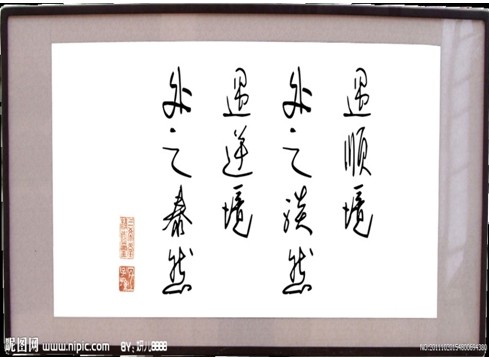 遇顺境
处之淡然
遇逆境
处之泰然
昵图网 www.nipic.com BY:
NO:20111020154800694380